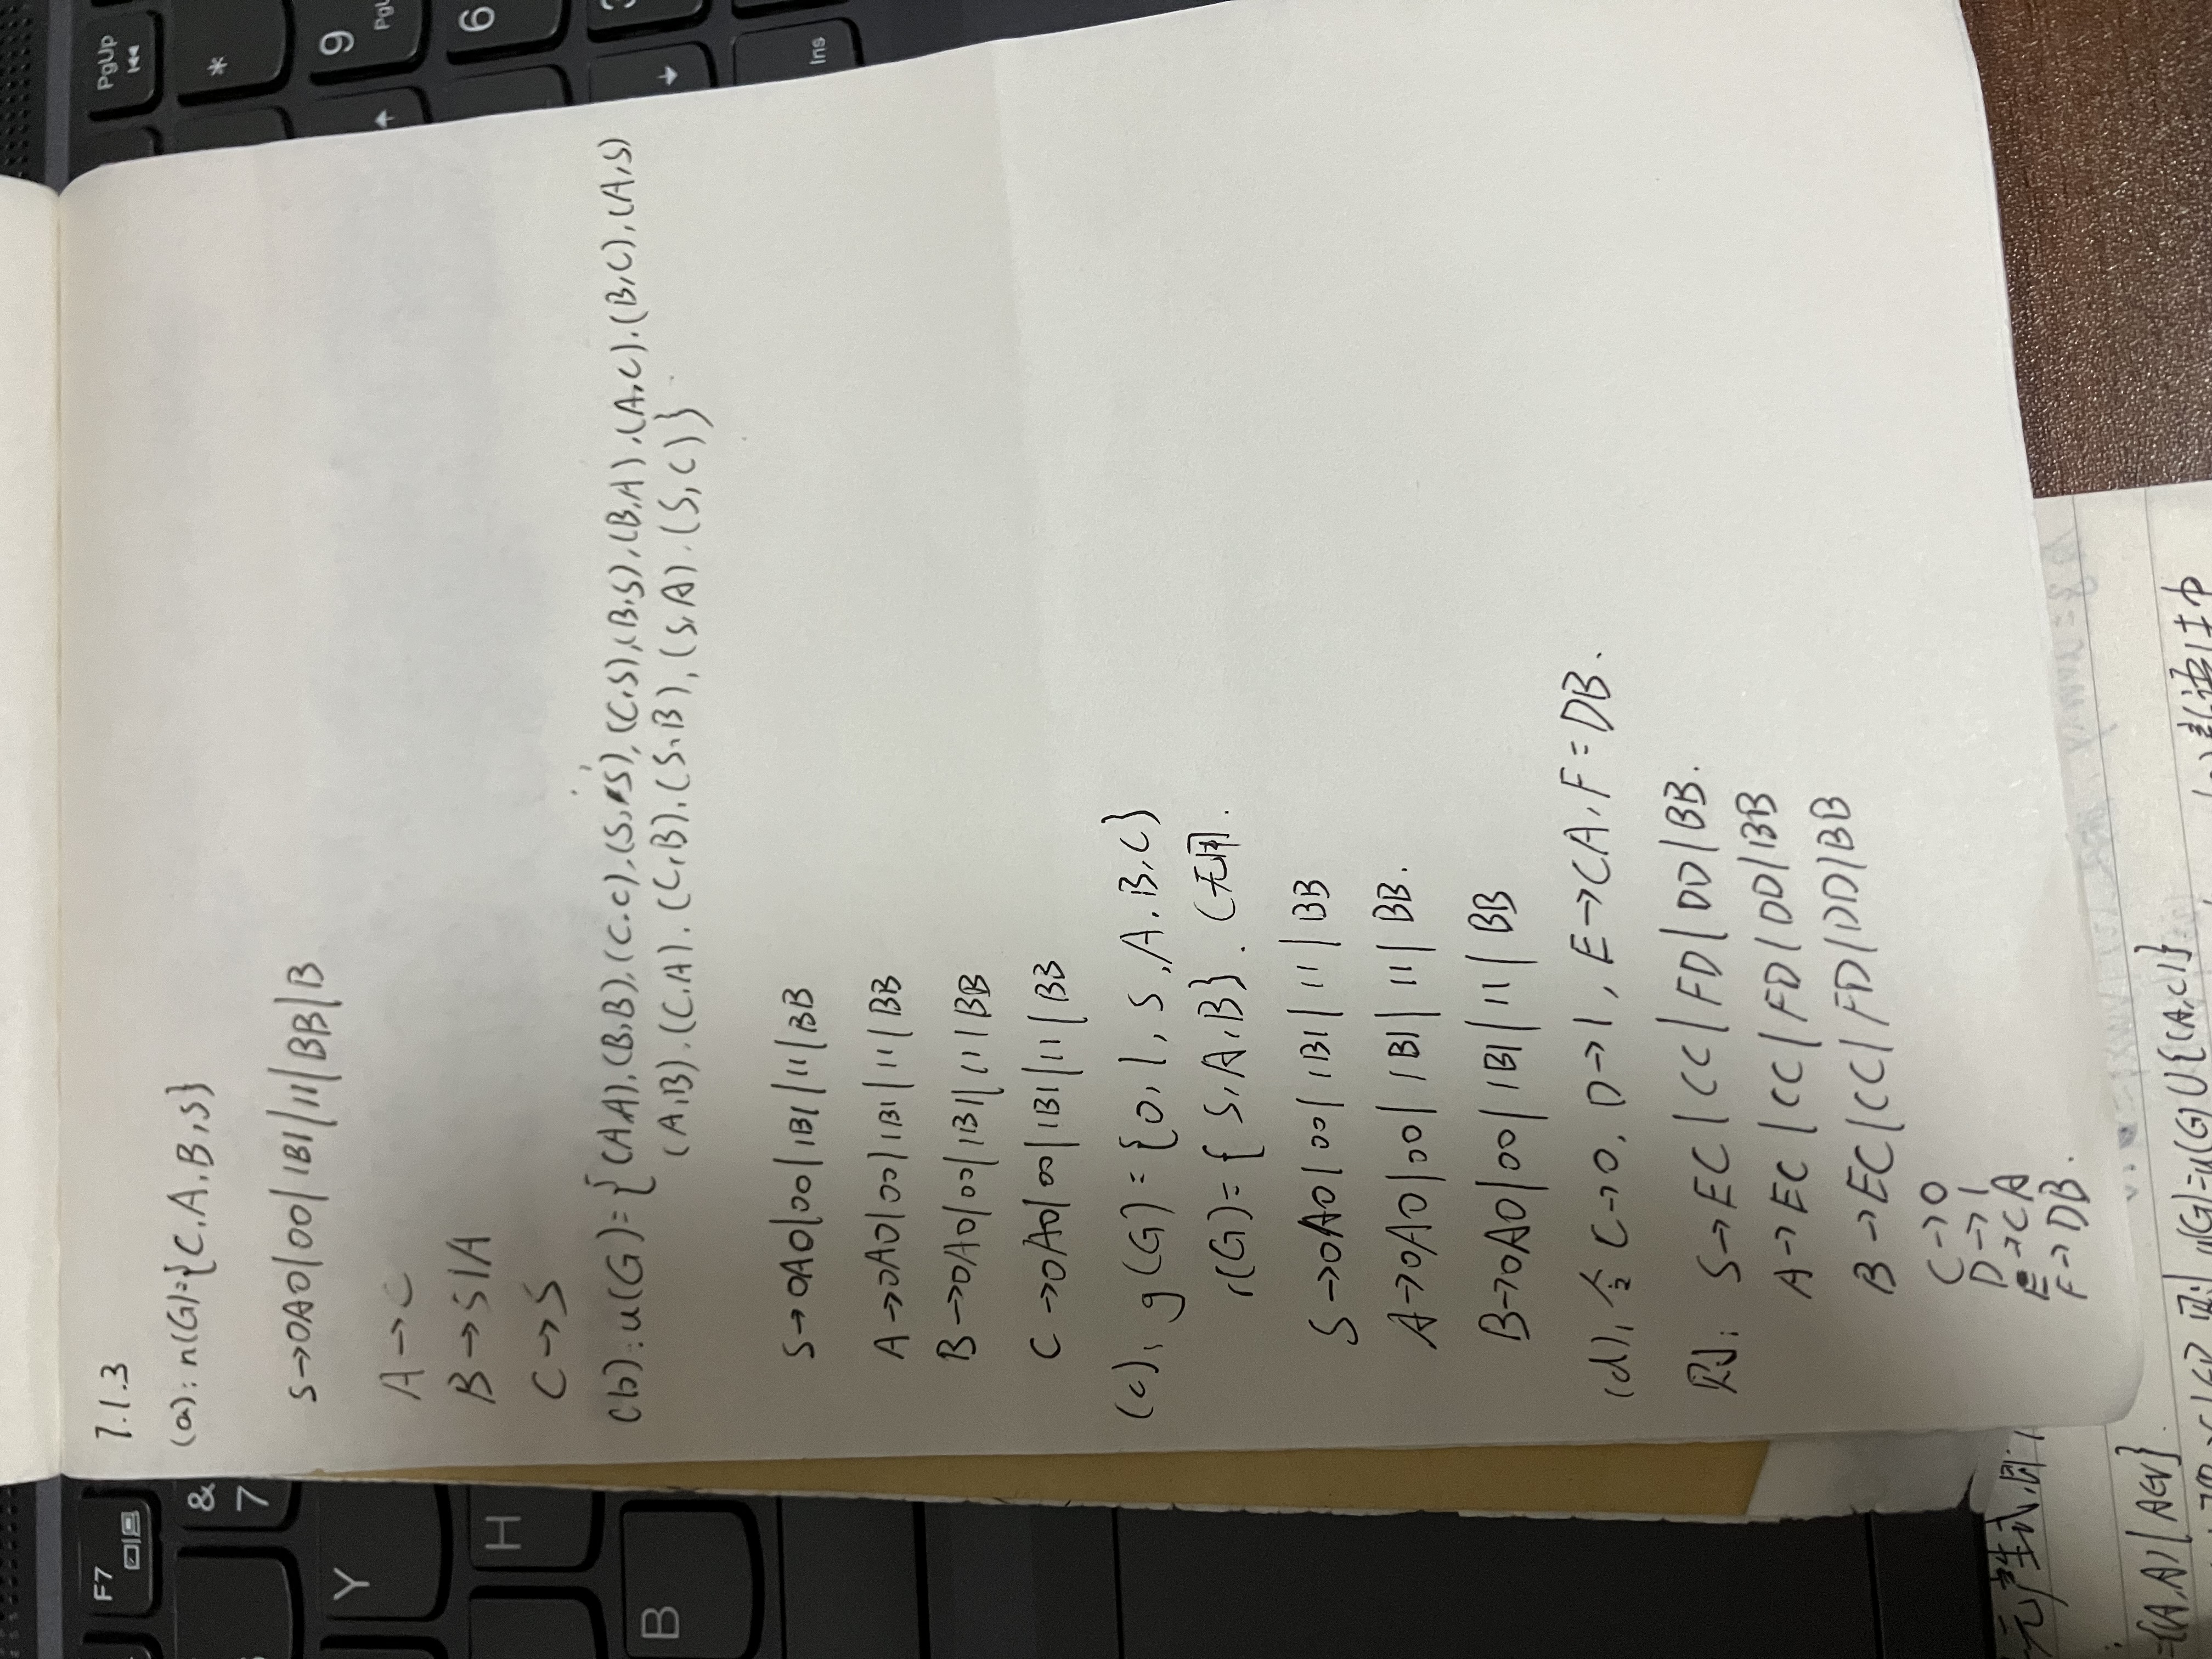 F7
&
7
Y
H
B
PgUp
*
9
6
Ins
7.1.3
(a): n(G)={C,A,B,S}
S→0A0|00|1B1|11|BB|B
A→C
B→S|A
C→S
(b):u(G)={(A,A),(B,B),(C,C),(S,S),(C,S),(B,S),(B,A),(A,C),(B,C),(A,S)
(A,B),(C,A),(C,B),(S,B),(S,A),(S,C)}
S→0A0|00|1B1|11|BB
A→0A0|00|1B1|11|BB
B→0A0|00|1B1|11|BB
C→0A0|00|1B1|11|BB
(c), g(G)={0,1,S,A,B,C}
r(G)={S,A,B}. (无用.
S→0A0|00|1B1|11|BB
A→0A0|00|1B1|11|BB.
B→0A0|00|1B1|11|BB
(d), 令C→0, D→1, E→CA, F=DB.
则: S→EC|CC|FD|DD|BB.
A→EC|CC|FD|DD|BB
B→EC|CC|FD|DD|BB
C→0
D→1
E→CA
F→DB.
元产生式,即
={(A,A)|A∈V}.
则 u(G)=u(G)∪{(A,C)}